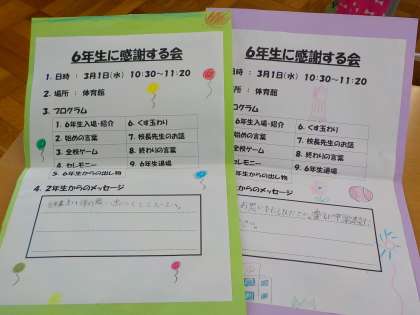 6年生に感謝する会
1. 日時 : 3月1日(水) 10:30~11:20
2. 場所 : 体育館
3. プログラム
1. 6年生入場・紹介 6. くす玉わり
2. 始めの言葉 7. 校長先生のお話
3. 全校ゲーム 8. 終わりの言葉
4. セレモニー 9. 6年生退場
5. 6年生からの出し物
4. 2年生からのメッセージ
6年生に感謝する会
日時 : 3月1日(水) 10:30~11:20
場所 : 体育館
プログラム
6年生入場・紹介 6. くす玉わり
始めの言葉 7. 校長先生のお話
全校ゲーム 8. 終わりの言葉
セレモニー 9. 6年生退場
6年生からの出し物
年生からのメッセージ